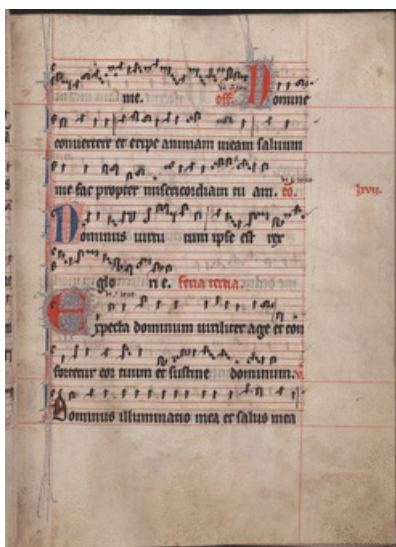 me. off. Domine
convertere et eripe animam meam salvum
me fac propter misericordiam tu am. co.
lxvii.
Dominus virtu tum ipse est rex
glo ri e. feria tertia.
Expecta dominum viriliter age et con
fortetur cor tuum et sustine dominum.
Dominus illuminatio mea et salus mea